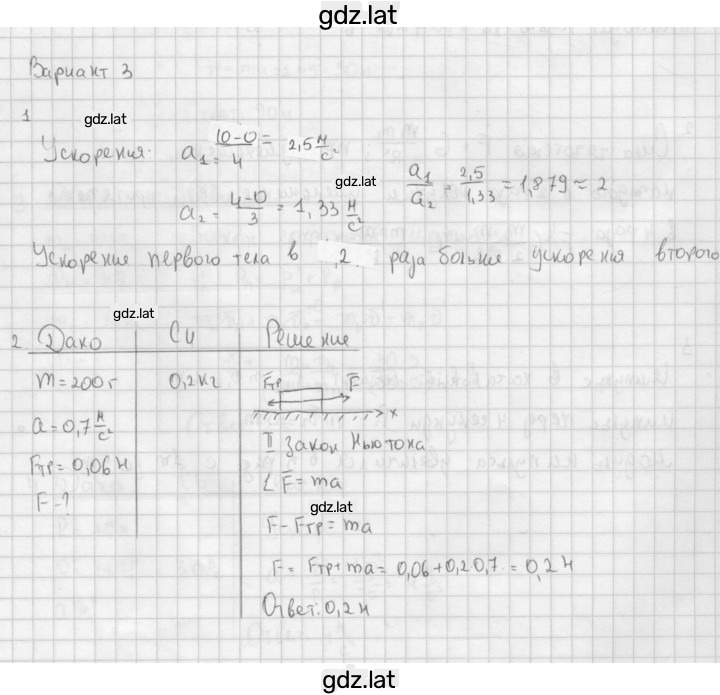 gdz.lat
Вариант 3
1
gdz.lat
Ускорения: a₁ = (10-0)/4 = 2,5 м/с²
gdz.lat
a₁/a₂ = 2,5/1,33 = 1,879 ≈ 2
a₂ = (4-0)/3 = 1,33 м/с²
Ускорение первого тела в 2 раза больше ускорения второго
gdz.lat
2 Дано СИ Решение
m = 200 г 0,2 кг Fтр F
a = 0,7 м/с² x
II закон Ньютона
Fтр = 0,06 Н
F = ma
F - ?
gdz.lat
F - Fтр = ma
F = Fтр + ma = 0,06 + 0,2 0,7 = 0,2 Н
Ответ: 0,2 Н
gdz.lat